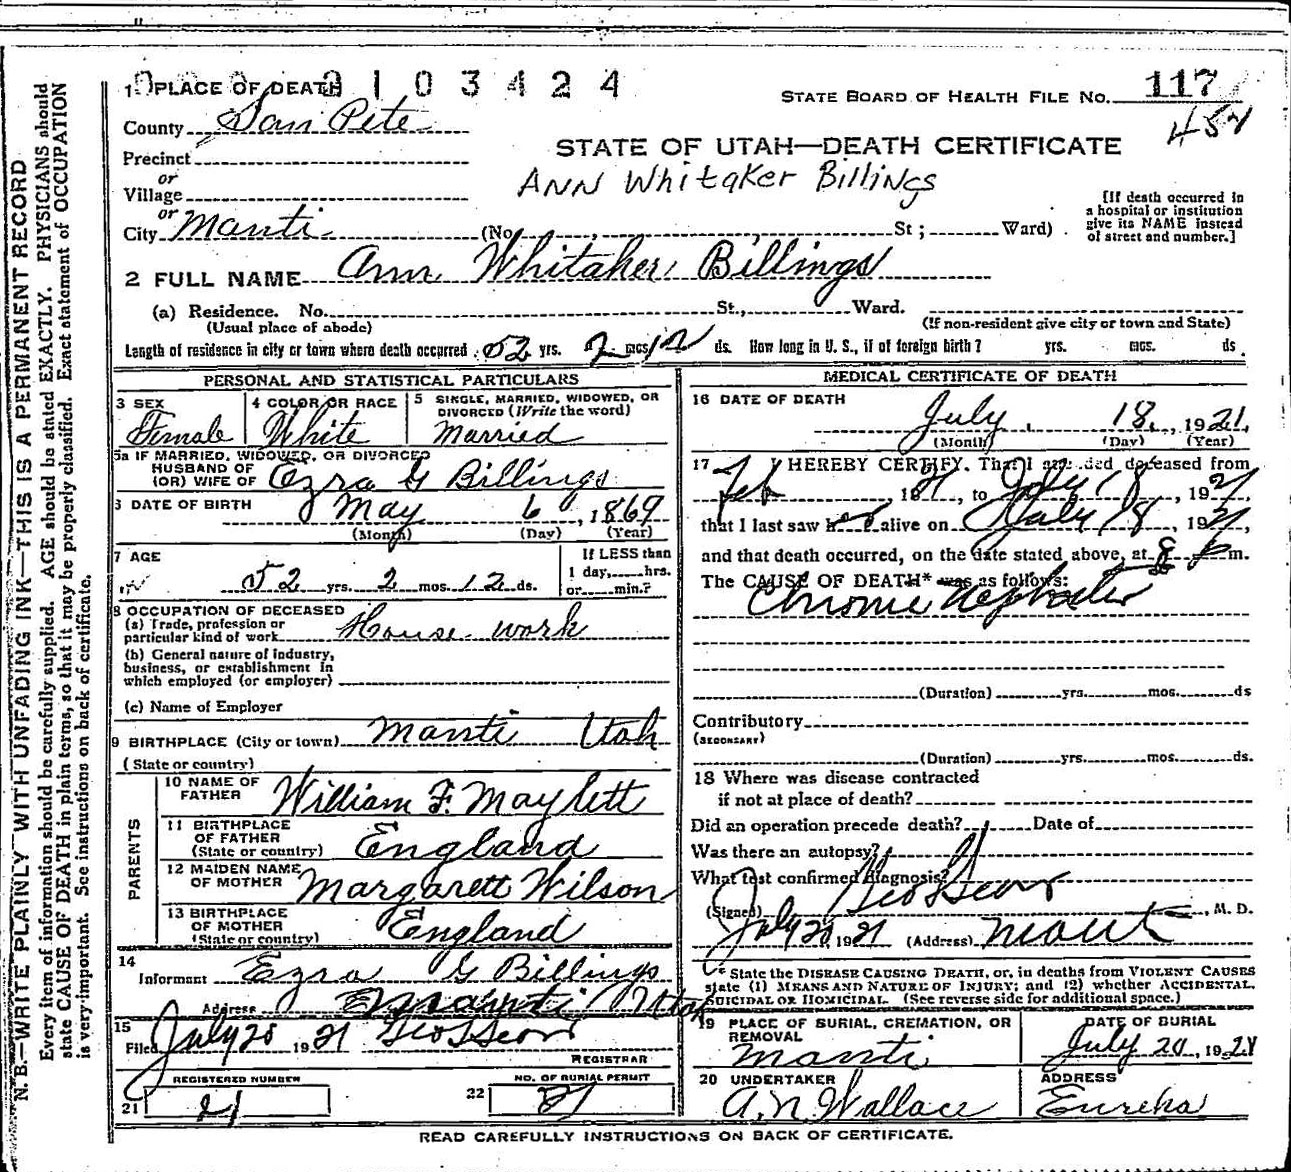 N. B.—WRITE PLAINLY WITH UNFADING INK—THIS IS A PERMANENT RECORD
Every item of information should be carefully supplied. AGE should be stated EXACTLY. PHYSICIANS should
state CAUSE OF DEATH in plain terms, so that it may be properly classified. Exact statement of OCCUPATION
is very important. See instructions on back of certificate.
0103424
1 PLACE OF DEATH
STATE BOARD OF HEALTH FILE NO. 117
County San Pete
STATE OF UTAH—DEATH CERTIFICATE
Precinct
or
Village
ANN Whitaker Billings
or
City Manti (No. , St; Ward)
[If death occurred in
a hospital or institution
give its NAME instead
of street and number.]
2 FULL NAME Ann Whitaker Billings
(a) Residence. No. St., Ward.
(Usual place of abode) (If non-resident give city or town and State)
Length of residence in city or town where death occurred 52 yrs. 2 mos 12 ds. How long in U. S., if of foreign birth? yrs. mos. ds.
PERSONAL AND STATISTICAL PARTICULARS
3 SEX Female
4 COLOR OR RACE White
5 SINGLE, MARRIED, WIDOWED, OR
DIVORCED (Write the word)
Married
5a IF MARRIED, WIDOWED, OR DIVORCED
HUSBAND OF
(OR) WIFE OF Ezra G Billings
6 DATE OF BIRTH May 6, 1869
(Month) (Day) (Year)
7 AGE
52 yrs. 2 mos. 12 ds.
If LESS than
1 day, hrs.
or min.?
8 OCCUPATION OF DECEASED
(a) Trade, profession or
particular kind of work House work
(b) General nature of industry,
business, or establishment in
which employed (or employer)
(c) Name of Employer
9 BIRTHPLACE (City or town) Manti Utah
(State or country)
PARENTS
10 NAME OF
FATHER William F. Maylett
11 BIRTHPLACE
OF FATHER
(State or country) England
12 MAIDEN NAME
OF MOTHER Margarett Wilson
13 BIRTHPLACE
OF MOTHER
(State or country) England
14
Informant Ezra G Billings
Address Manti Utah
15
Filed July 20 1921
REGISTRAR
REGISTERED NUMBER
21 21
NO. OF BURIAL PERMIT
22 21
MEDICAL CERTIFICATE OF DEATH
16 DATE OF DEATH
July 18, 1921
(Month) (Day) (Year)
17 I HEREBY CERTIFY, That I attended deceased from
Feb, 1921, to July 18, 1921,
that I last saw her alive on July 18, 1921,
and that death occurred, on the date stated above, at 8 P m.
The CAUSE OF DEATH* was as follows:
Chronic
(Duration) yrs. mos. ds
Contributory
(SECONDARY)
(Duration) yrs. mos. ds.
18 Where was disease contracted
if not at place of death?
Did an operation precede death? Date of
Was there an autopsy?
What test confirmed diagnosis?
(Signed) , M. D.
July 20, 1921 (Address) Manti
* State the DISEASE CAUSING DEATH, or, in deaths from VIOLENT CAUSES
state (1) MEANS AND NATURE OF INJURY; and (2) whether ACCIDENTAL,
SUICIDAL OR HOMICIDAL. (See reverse side for additional space.)
19 PLACE OF BURIAL, CREMATION, OR
REMOVAL
Manti
DATE OF BURIAL
July 20, 1921
20 UNDERTAKER
A. N. Wallace
ADDRESS
Eureka
READ CAREFULLY INSTRUCTIONS ON BACK OF CERTIFICATE.